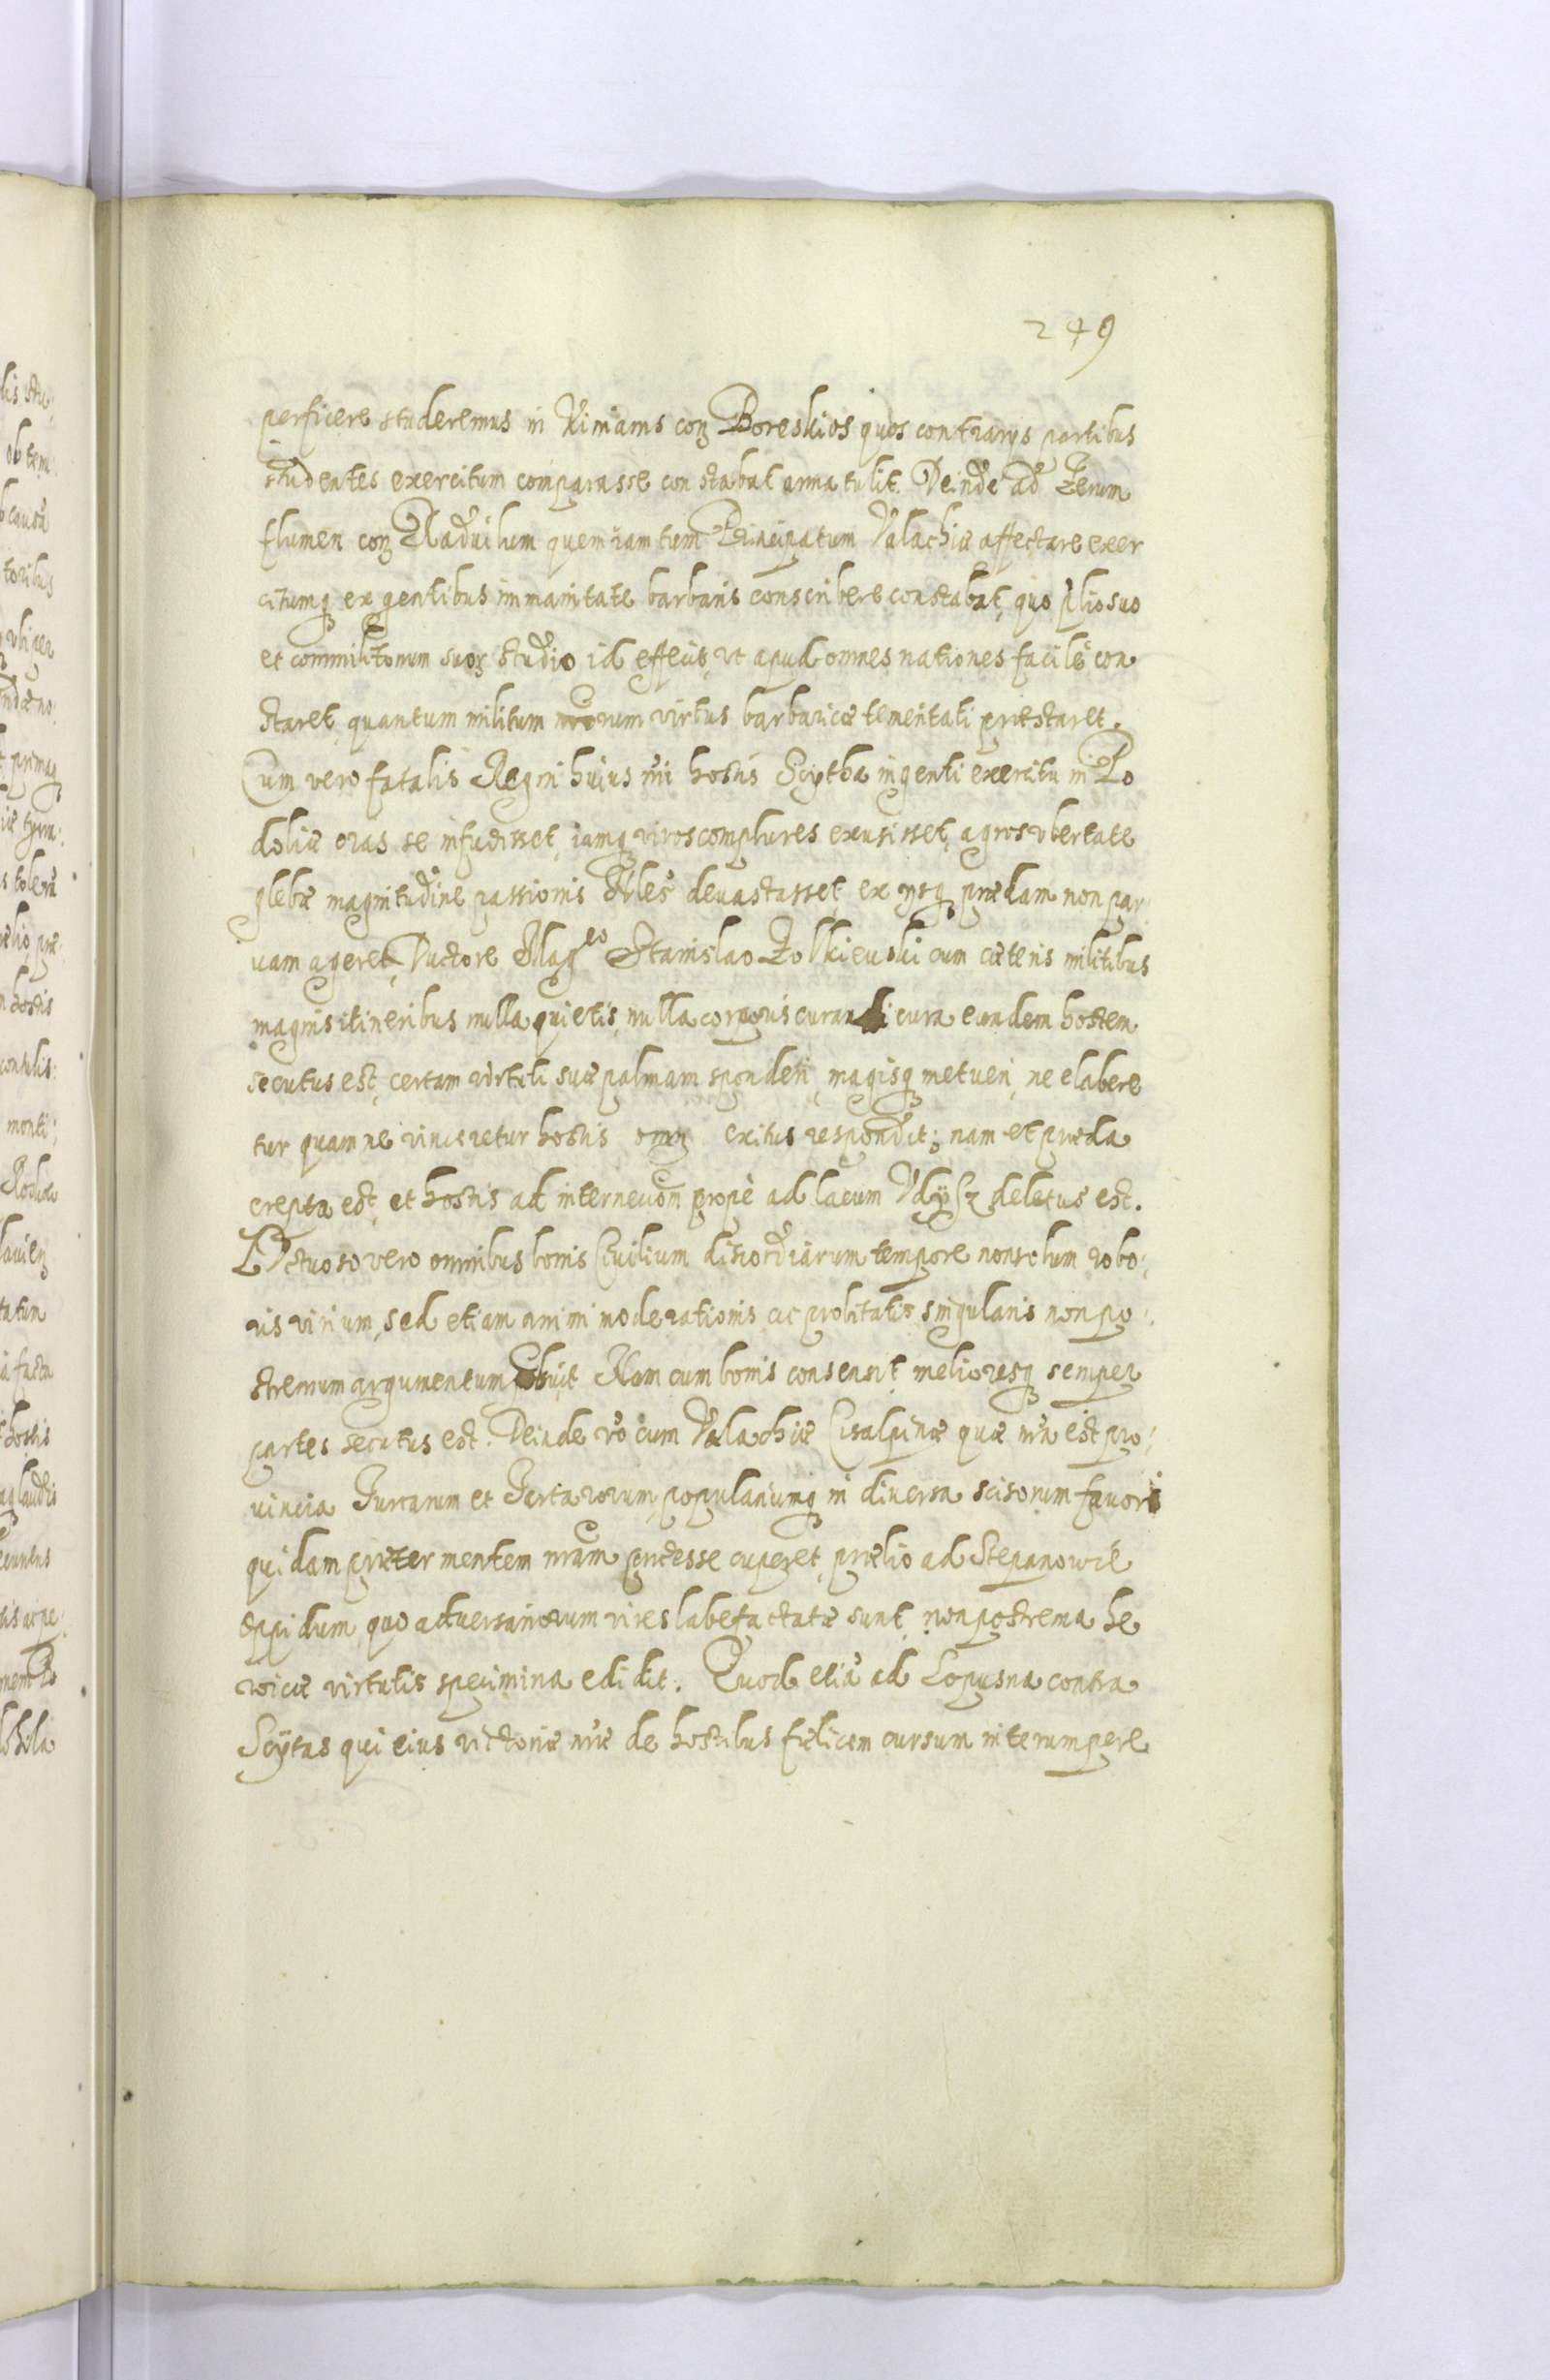 249
perficere studeremus in Nimians con Boreskios quos contrarys partibus
studentes exercitum comparasse constabat arma tulit. Deinde ad Zerum
flumen con Raduilum quem iam tum Principatum Valachiæ affectare exer
citumq ex gentibus immanitate barbaris conscribere constabat, quo plio suo
et commilitonum suoꝝ studio id effecit, ut apud omnes nationes facile con
staret quantum militum nrorum virtus barbaricæ temeritati præstaret.
Cum vero fatalis Regni huius nri hostis Scytha ingenti exercitu in Po
doliæ oras se infudisset, iamq viros complures exusisset, agros ubertate
glebæ magnitudine passionis devastasset, ex ysq prædam non par
uam ageret, Ductore Mag^co Stanislao Zolkieuski cum cæteris militibus
magnis itineribus nulla quietis, nulla corporis curandi cura eundem hostem
secutus est, certam virtuti suæ palmam sponden, magisq metuen, ne elabere
tur quam ne vinceretur hostis exitus respondit; nam et præda
erepta est, et hostis ad internecion prope ad lacum Udysz deletus est.
Luctuoso vero omnibus bonis Ciuilium discordiarum tempore non solum robo:
ris virium, sed etiam animi moderationis, ac probitatis singularis non po:
stremum argumentum Nam cum bonis consensit, melioresq semper
partes secutus est. Deinde vo cum Valachiæ Cisalpinæ quæ nra est pro:
uincia Turcarum et Tartarorum, populariumq in diuersa scisorum fauori
quidam præter mentem nram præesse cuperet, prælio ad Stepanowce
oppidum, quo aduersariorum vires labefactatæ sunt, non postrema he
roicæ virtutis specimina edidit. Quod etia ad Lopusna contra
Scytas qui eius victoriæ nræ de hostibus fælicem cursum interrumpere